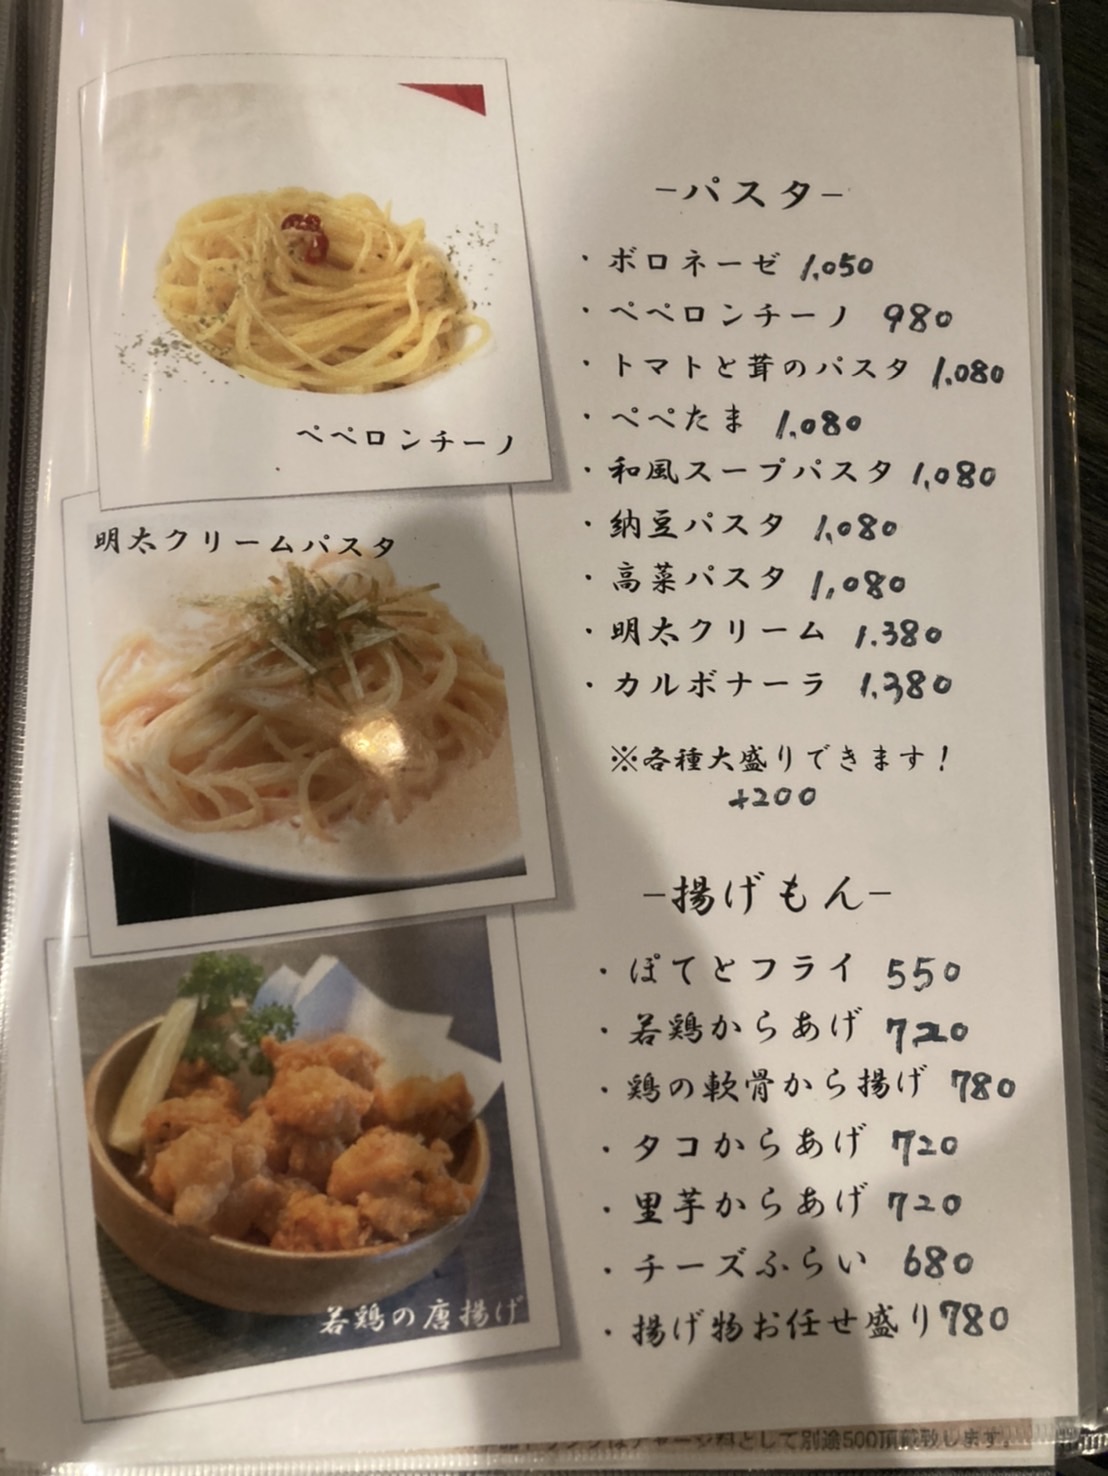 ペペロンチーノ
明太クリームパスタ
若鶏の唐揚げ
－パスタ－
・ボロネーゼ 1,050
・ペペロンチーノ 980
・トマトと茸のパスタ 1,080
・ペペたま 1,080
・和風スープパスタ 1,080
・納豆パスタ 1,080
・高菜パスタ 1,080
・明太クリーム 1.380
・カルボナーラ 1.380
※各種大盛りできます！
+200
－揚げもん－
・ぽてとフライ 550
・若鶏からあげ 720
・鶏の軟骨から揚げ 780
・タコからあげ 720
・里芋からあげ 720
・チーズふらい 680
・揚げ物お任せ盛り780
チャージ料として別途500頂戴致します。